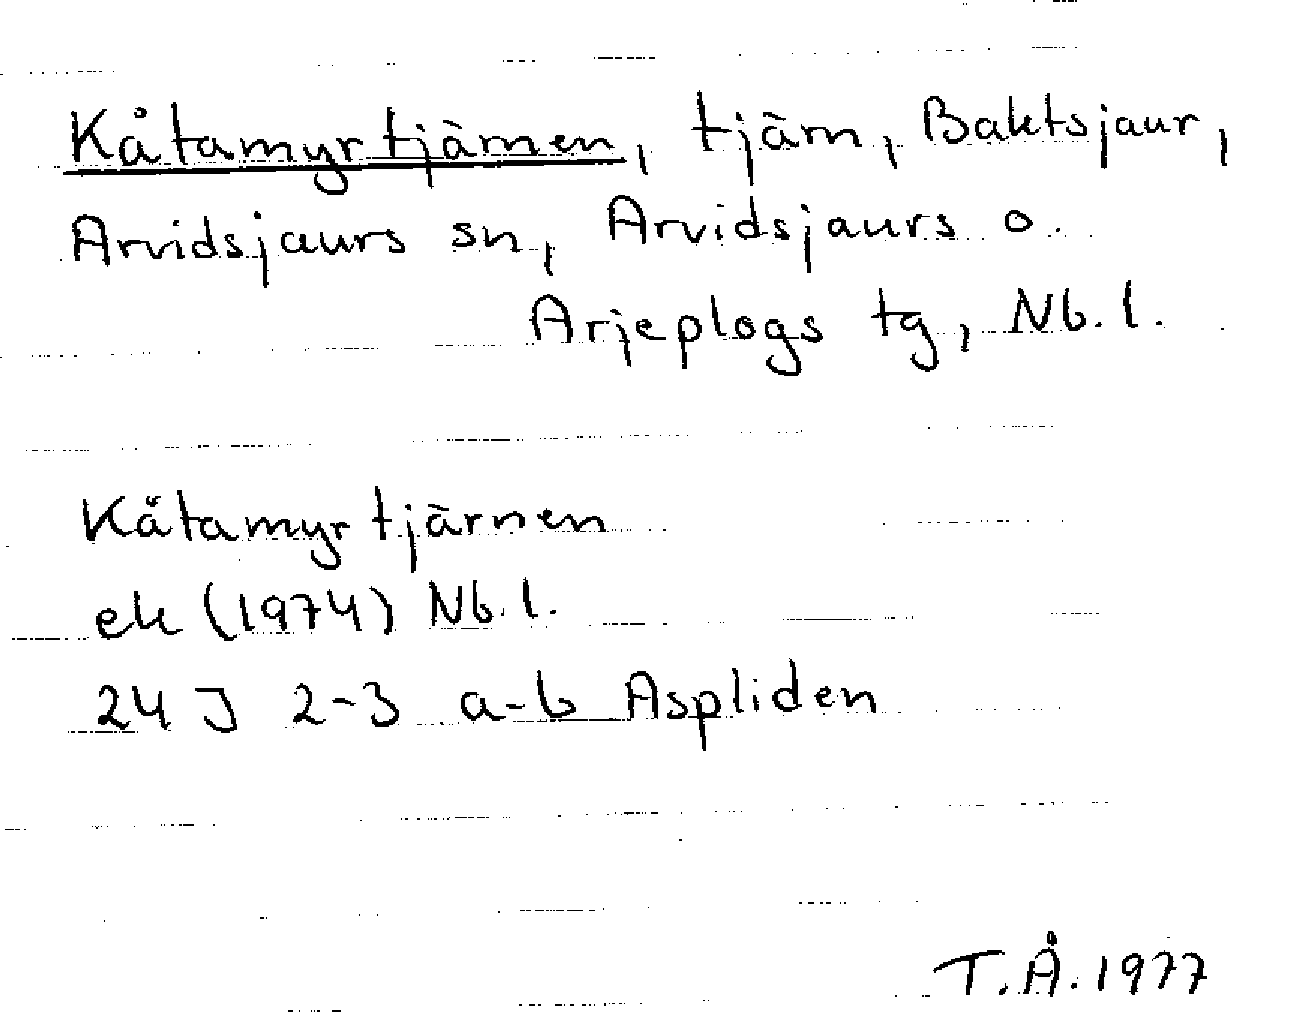 Kåtamyrtjärnen, tjärn, Baktsjaur,
Arvidsjaurs sn, Arvidsjaurs o
Arjeplogs tg, Nb.l.
Kåtamyrtjärnen
ek (1974) Nb.l.
24 J 2-3 a-b Aspliden
T.Å.1977